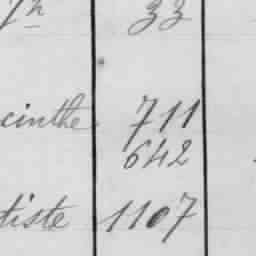 33
cinthe 711
642
tiste 1107